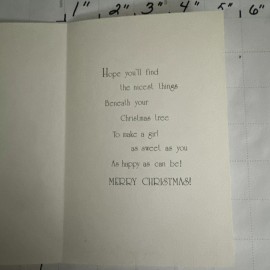 1" 2" 3" 4" 5" 6"
Hope you'll find
the nicest things
Beneath your
Christmas tree
To make a girl
as sweet as you
As happy as can be!
MERRY CHRISTMAS!